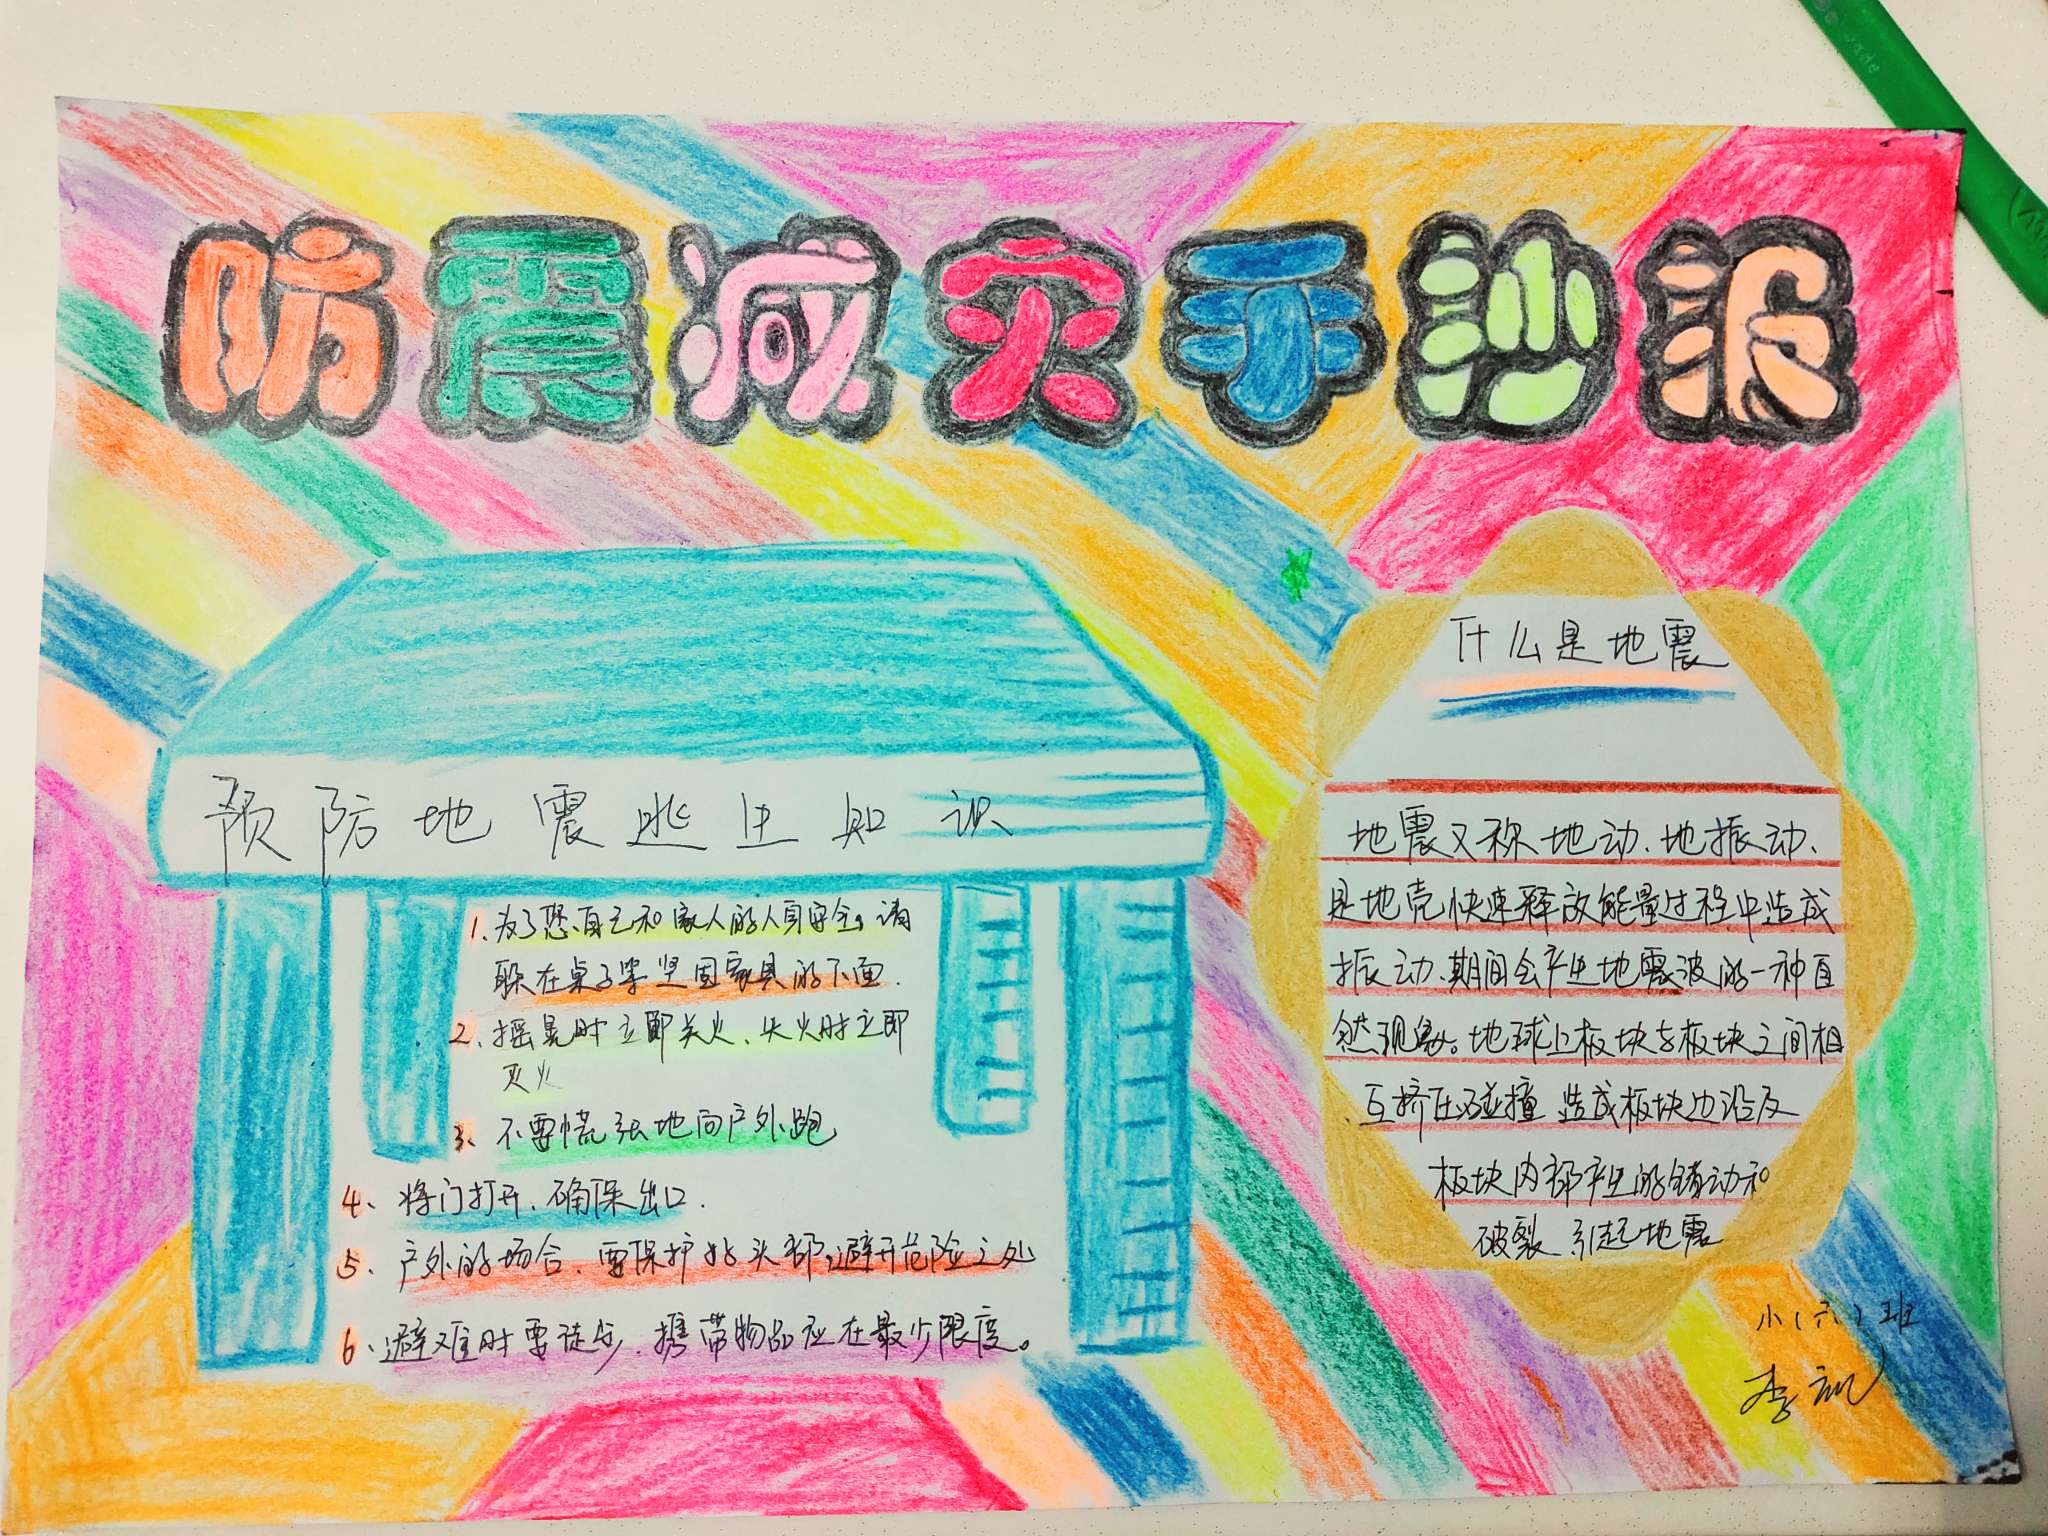 防震减灾手抄报
预防地震逃生知识
1、为了您自己和家人的人身安全,请
躲在桌子等坚固家具的下面.
2、摇晃时立即关火、失火时立即
灭火
3、不要慌张地向户外跑
4、将门打开、确保出口.
5、户外的场合、要保护好头部,避开危险之处
6、避难时要徒步、携带物品应在最少限度。
什么是地震
地震又称地动、地振动、
是地壳快速释放能量过程中造成
振动、期间会产生地震波的一种自
然现象。地球上板块与板块之间相
互挤压碰撞、造成板块边沿及
板块内部产生的错动和
破裂、引起地震
小(六)班
李